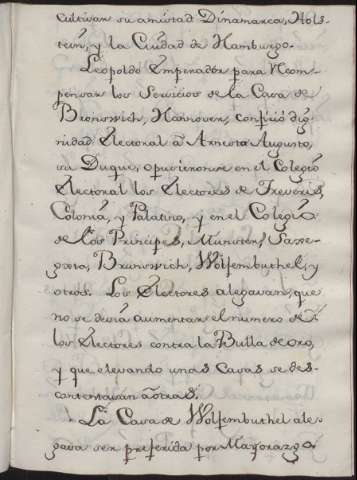 cultivar su amistad Dinamarca, Hols-
tein, y la Ciudad de Hamburgo.
Leopoldo Emperador para Recom-
pensar los Servicios de la Casa de
Brunswich, Hannover, confirió dig-
nidad Electoral à Arnesto Augusto,
su Duque, opusieronse en el Colegio
Electoral los Electores de Treveris,
Colonia, y Palatino, y en el Colegio
de los Principes, Munster, Saxe-
gota, Brunswich, Wolfembuthel, y
otros. Los Electores alegavan, que
no se devia aumentar el numero de
los Electores contra la Bulla de oro,
y que elevando unas Casas se des-
contentavan à otras.
La Casa de Wolfembuthel ale-
gava ser preferida por Mayorazgo